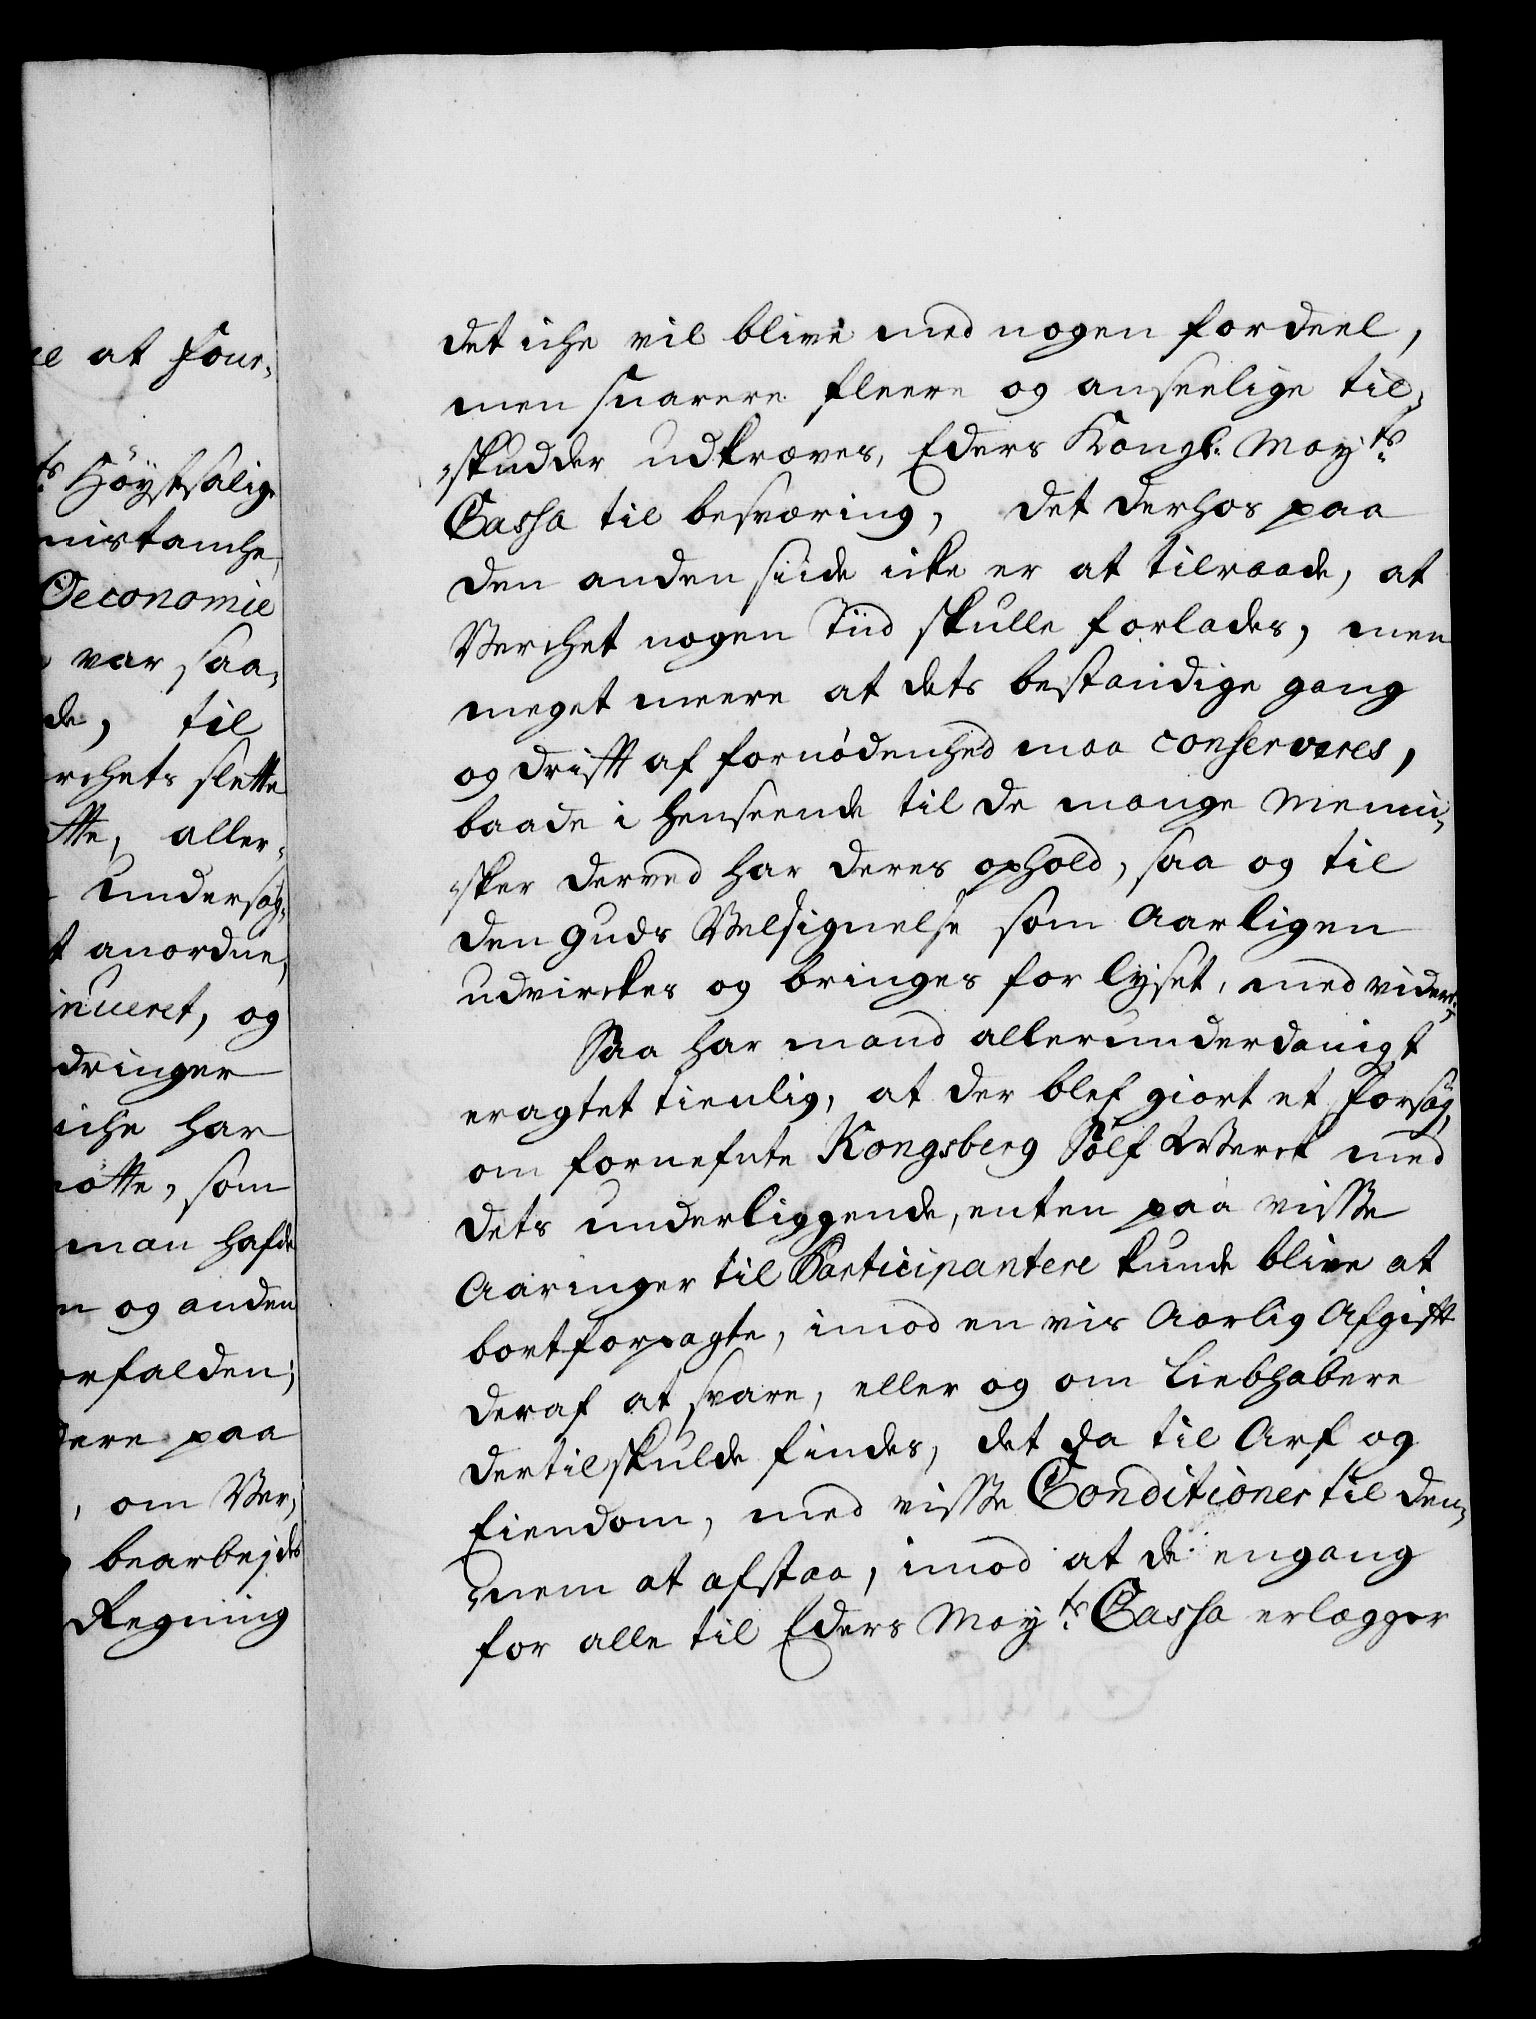 at four¬
ts Höystsalig
mistanche,
Oeconomie
var saa¬
de, til
rchets slette
tte, aller¬
undersøg¬
t anordne,
inueret, og
dringer
iche har
øtte, som
man hafde
n og anden
rfalden;
dere paa
, om Ver¬
bearbejdes
Regning
det iche vil blive med nogen fordeel,
men snarere fleere og anseelige til¬
skudder udkræves, Eders Kongl: Mayts
Cassa til besværing, det derhos paa
den anden siide icke er at tilraade, at
Verchet nogen Tiid skulle forlades, men
meget meere at dets bestandige gang
og drifft af fornødenhed maa conserveres,
baade i henseende til de mange Menni¬
sker derved har deres ophold, saa og til
den Guds Velsignelse som Aarligen
udvirckes og bringes for lyset, med videre;
Saa har mand allerunderdanigst
eragtet tienlig, at der blef giort et forsøg,
om fornefnte Kongsberg Sølf Werck med
dets underliggende, enten paa visse
Aaringer til Participantere kunde blive at
bortforpagte, imod en vis Aarlig Afgifft
deraf at svare, eller og om Liebhabere
dertil skulde findes, det da til Arf og
Eiendom, med visse Conditioner til den¬
nem at afstaa, imod at de engang
for alle til Eders Mayts Cassa erlægger